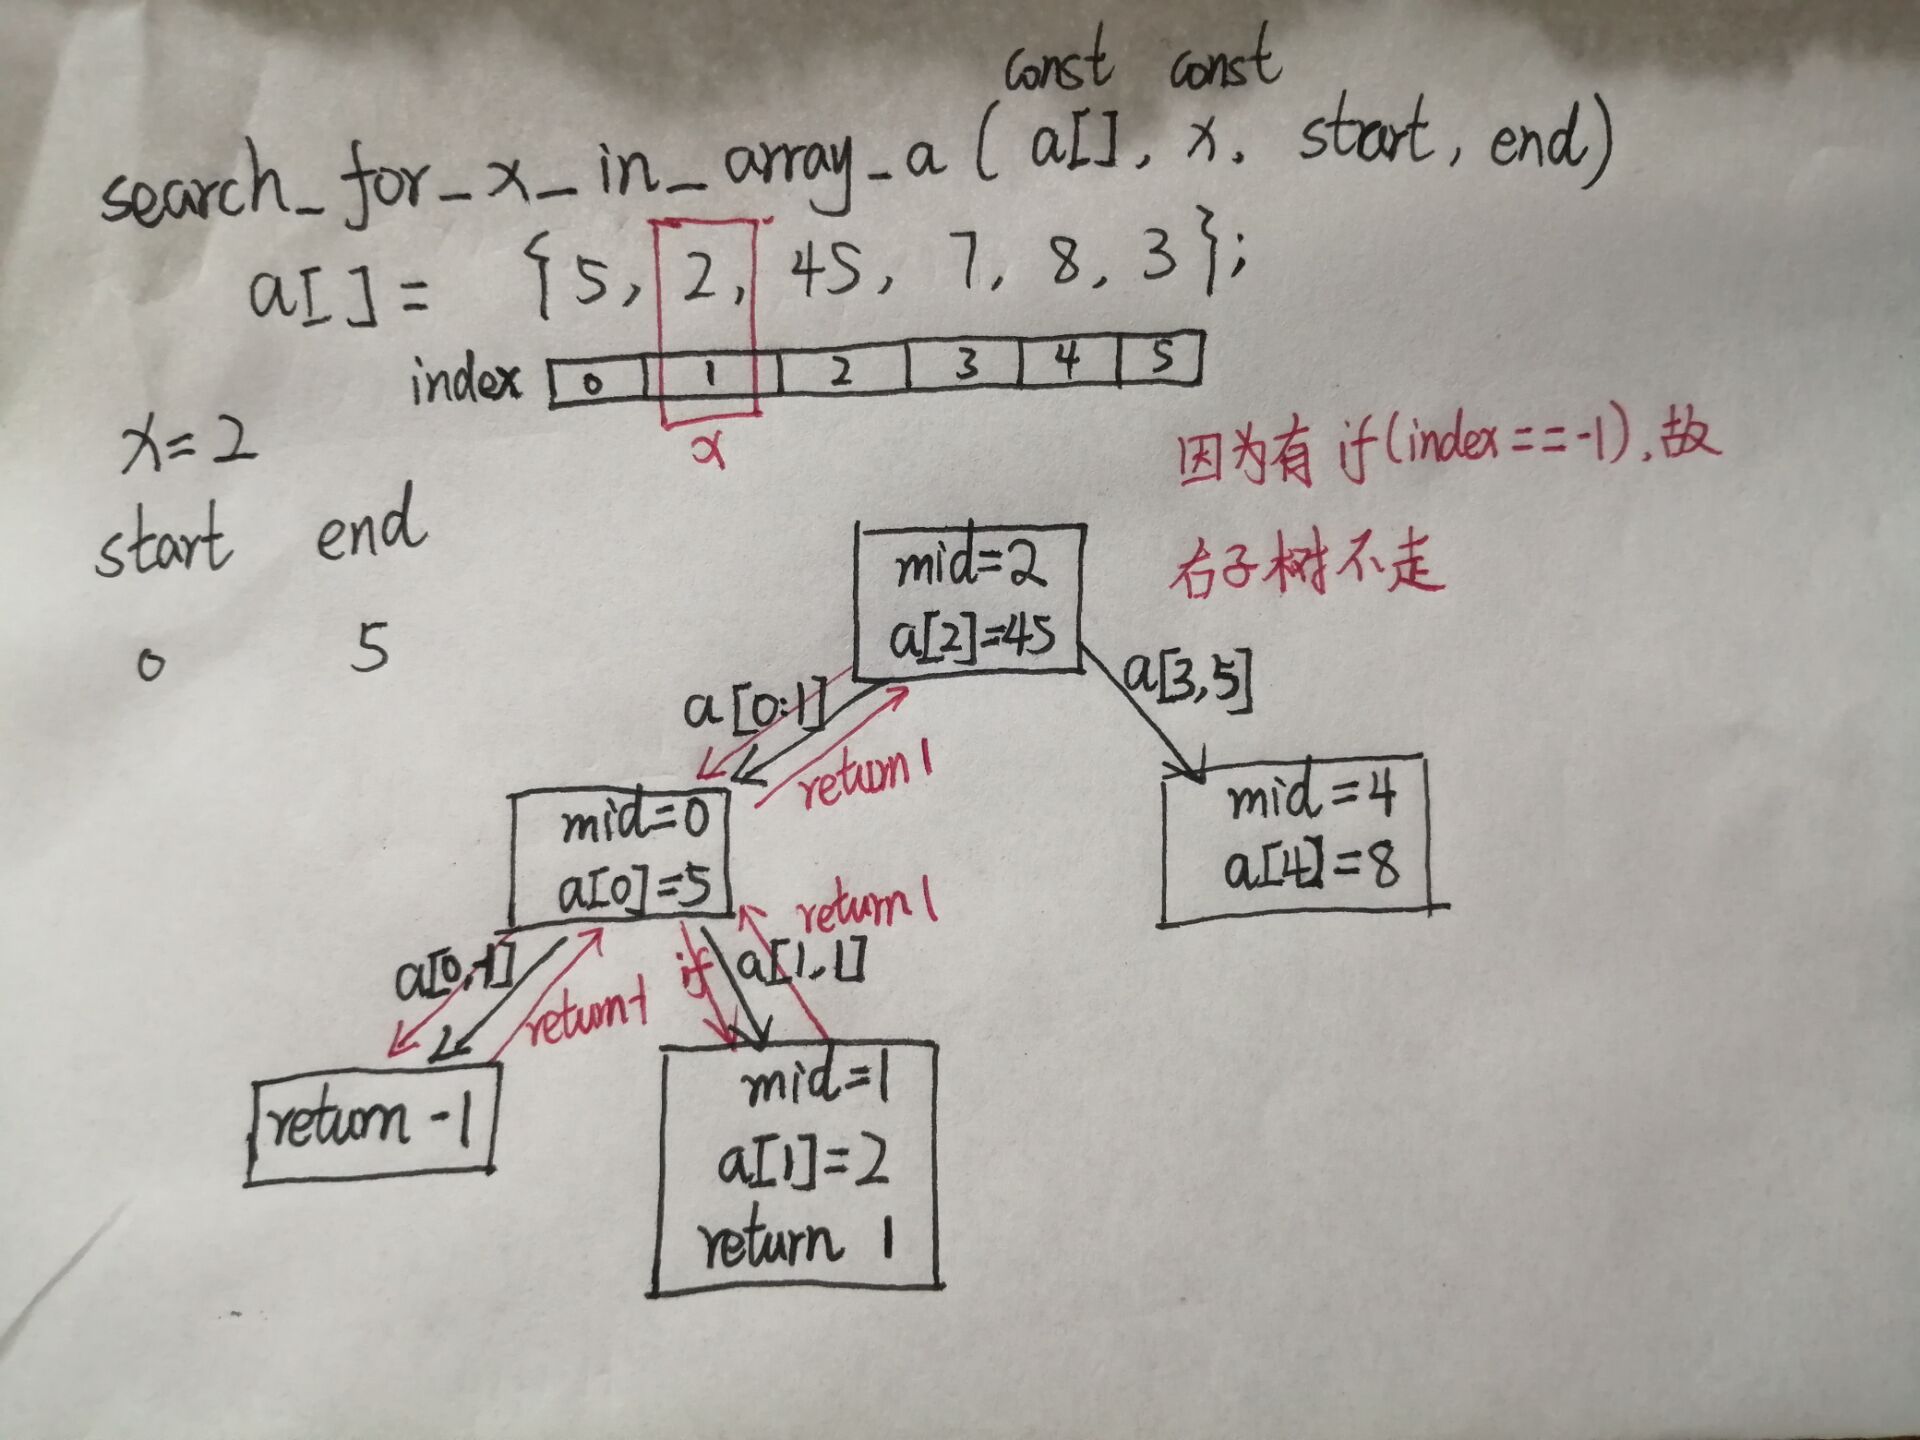 const const
search_for_x_in_array_a ( a[], x, start, end)
a[] = {5, 2, 45, 7, 8, 3};
index 0 1 2 3 4 5
x
x=2
因为有 if(index==-1),故
右子树不走
start end
0 5
mid=2
a[2]=45
a[0:1]
a[3,5]
return 1
mid=0
a[0]=5
mid=4
a[4]=8
return 1
a[0,-1]
return-1
if
a[1,1]
return -1
mid=1
a[1]=2
return 1